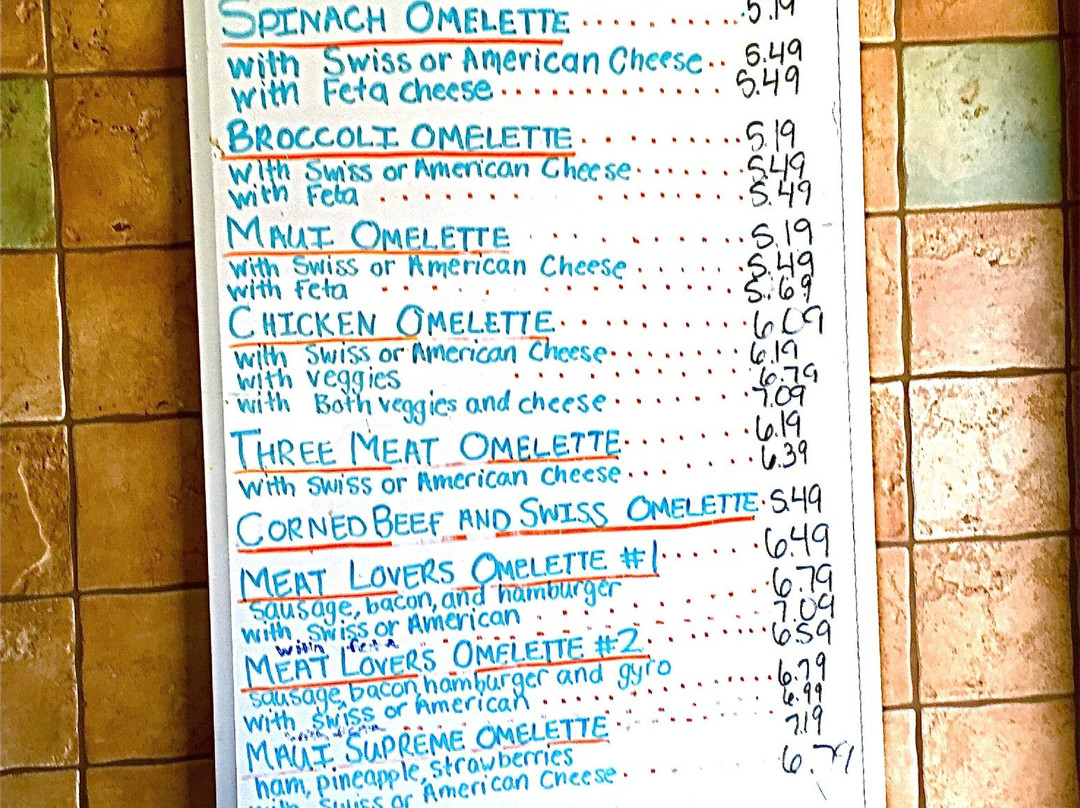 SPINACH OMELETTE .......... 5.19
with Swiss or American Cheese.. 5.49
with Feta cheese ............. 5.49
BROCCOLI OMELETTE ......... 5.19
with Swiss or American Cheese ....... 5.49
with Feta .......... 5.49
MAUI OMELETTE ......... 5.19
with Swiss or American Cheese ...... 5.49
with feta .......... 5.69
CHICKEN OMELETTE .......... 6.09
with Swiss or American Cheese ........ 6.19
with veggies .......... 6.79
with Both veggies and cheese ....... 7.09
THREE MEAT OMELETTE ....... 6.19
with Swiss or American Cheese ....... 6.39
CORNED BEEF AND SWISS OMELETTE . 5.49
MEAT LOVERS OMELETTE #1 ...... 6.49
sausage, bacon, and hamburger
with Swiss or American .......... 6.79
with feta .......... 7.09
MEAT LOVERS OMELETTE #2 ........ 6.59
sausage, bacon, hamburger and gyro
with Swiss or American .......... 6.79
6.99
MAUI SUPREME OMELETTE .......... 7.19
ham, pineapple, strawberries
6.79
with Swiss or American Cheese.